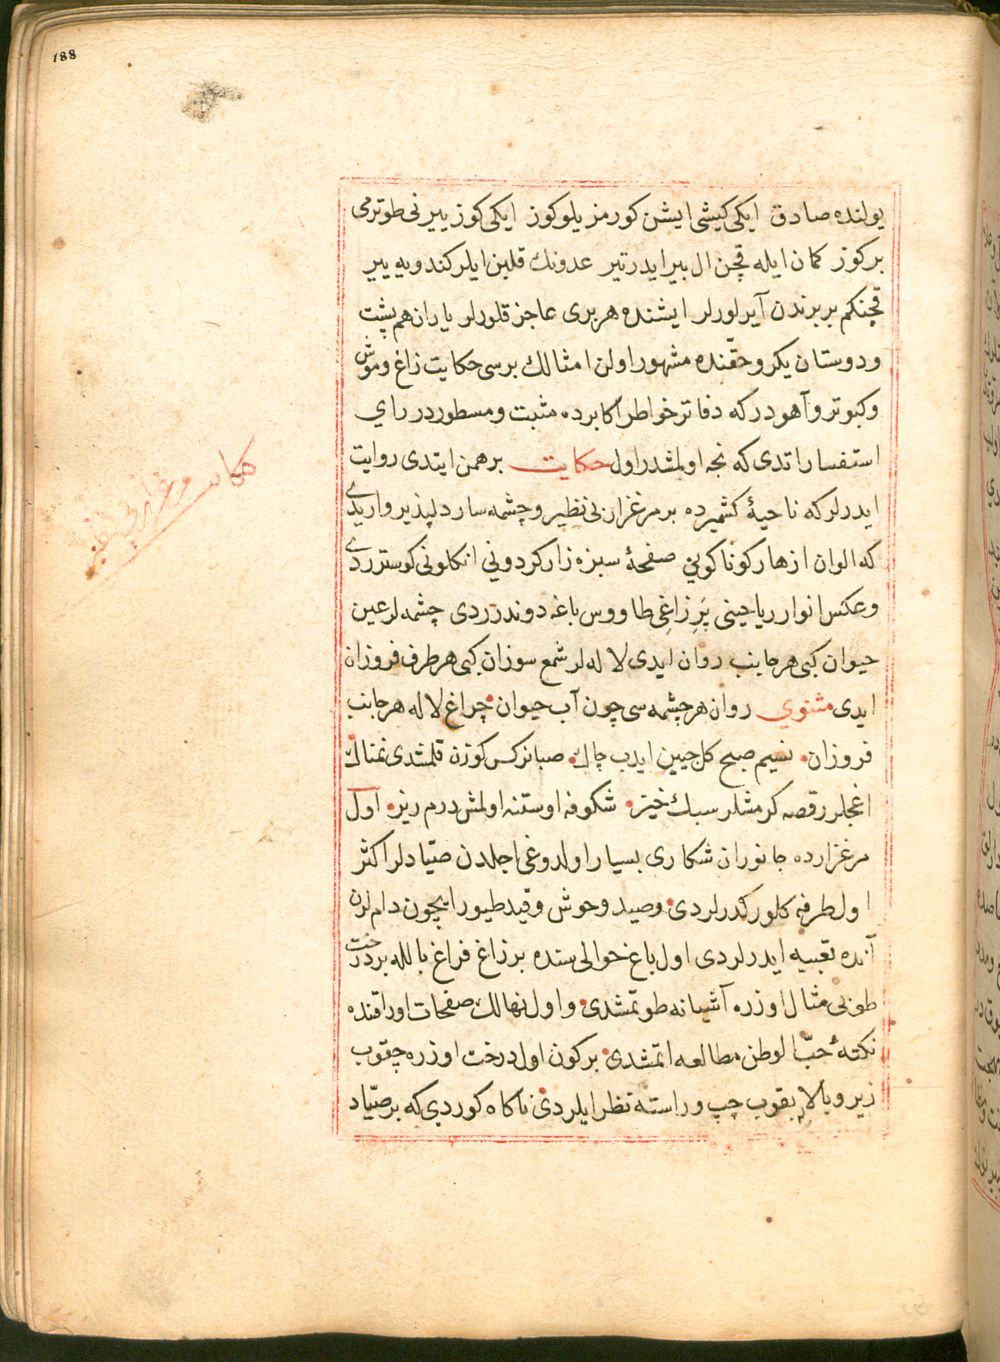 188
يولنده صادق ايكى كيشى ايشن كورمز يلوكوز ايكى كوز بيرنى طوترمى
بر كوز كمان ايله قچن ال بير ايدر تير عدونك قلبن ايلر كندويه يير
قچنكم بر برندن آيرلورلر ايشنده هر برى عاجز قلورلر ياران هم پشت
و دوستان يكرو حقنده مشهور اولن امثالك برسى حكايت زاغ و موش
و كبوتر و آهودر كه دفاتر خواطر اكابرده مثبت و مسطوردر راي
استفسار اتدى كه نجه اولمشدر اول حكايت برهمن ايتدى روايت
ايدرلر كه ناحيۀ كشميرده بر مرغزار بى نظير و چشمه سار دلپذير واريدى
كه الوان ازهار كوناكونى صفحۀ سبزه زار كردونى انكلونى كوسترردى
و عكس انوار رياحينى پَرِ زاغِى طاووس باغه دوندرردى چشمه لر عين
حيوان كبى هر جانب روان ايدى لاله لر شمع سوزان كبى هر طرف فروزان
ايدى مثنوي روان هر چشمه سى چون آب حيوان چراغ لاله هر جانب
فروزان نسيم صبح كل جيبن ايدب چاك صبا نركس كوزن قلمشدى نمناك
اغجلر رقصه كرمشلر سبك خيز شكوفه اوستنه اولمش درم ريز اول
مرغزارده جانوران شكارى بسيار اولدوغى اجلدن صيّادلر اكثر
اول طرفه كلور كدرلردى و صيد وحوش و قيد طيور ايچون دام لرن
آنده تعبيه ايدرلردى اول باغ حوالى سنده بر زاغ فراغ بال له بر درخت
طوبى مثال اوزره آشيانه طوتمشدى و اول نهالك صفحات اوراقنده
نكتۀ حبّ الوطن مطالعه اتمشدى بر كون اول درخت اوزره چقوب
زير و بالايه بقوب چپ و راسته نظر ايلردى ناكاه كوردي كه بر صيّاد